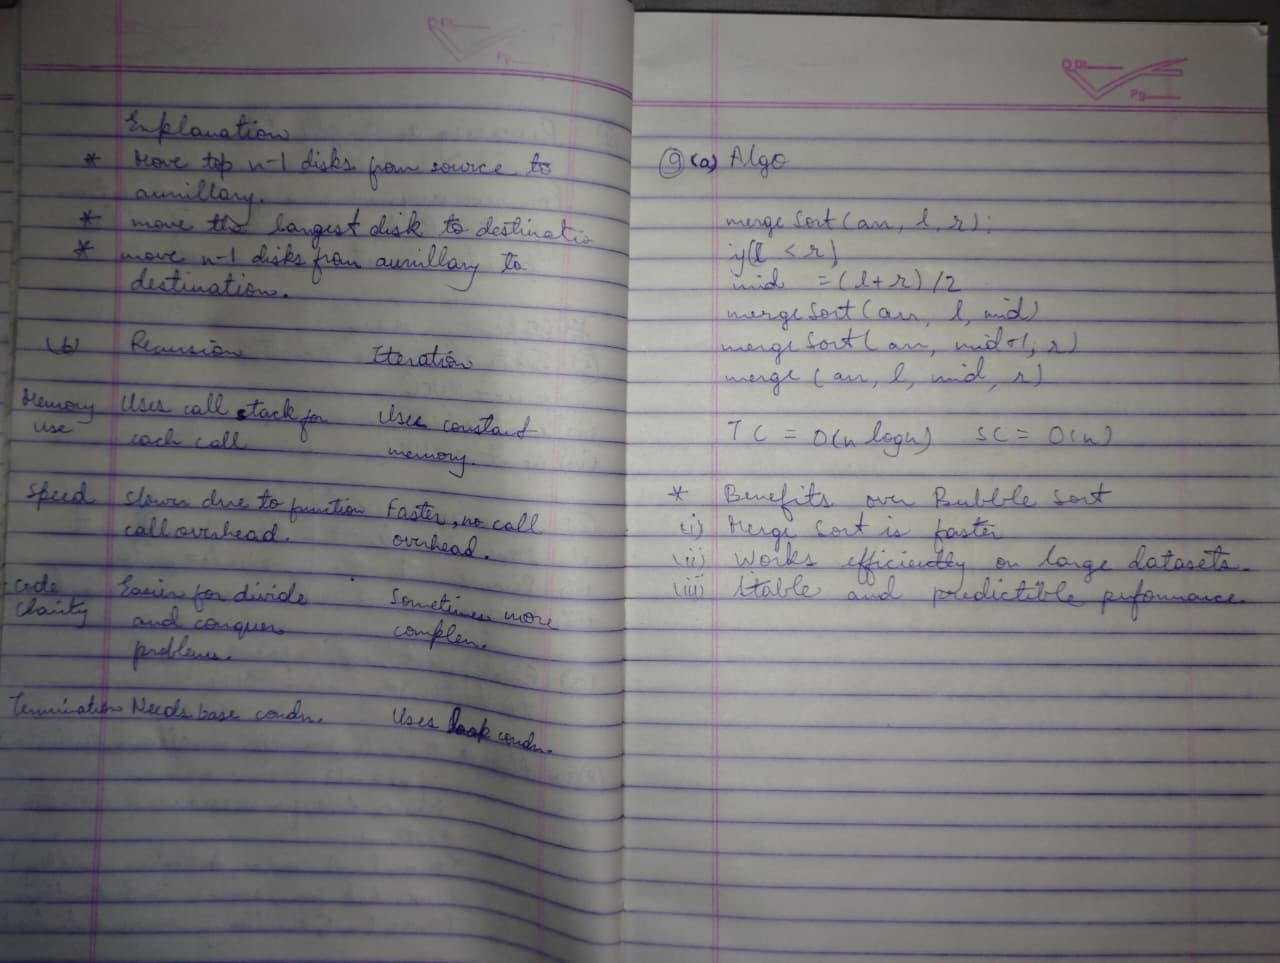 Explanation
* Move top n-1 disks from source to
auxillary.
* move the largest disk to destinatio
* move n-1 disks from auxillary to
destination.
(b) Recursion Iteration
Memory use Uses call stack for each call Uses constant memory.
Speed slower due to function call overhead. Faster, no call overhead.
code clarity Easier for divide and conquer problems. Sometimes more complex.
Termination Needs base condn. Uses loop condn.
D Dt
Pg
9 (a) Algo
merge Sort (arr, l, r):
if(l < r)
mid = (l+r)/2
merge Sort (arr, l, mid)
merge Sort (arr, mid+1, r)
merge (arr, l, mid, r)
TC = O(n logn) SC = O(n)
* Benefits over Bubble sort
(i) Merge Sort is faster
(ii) Works efficiently on large datasets.
(iii) Stable and predictible performance.